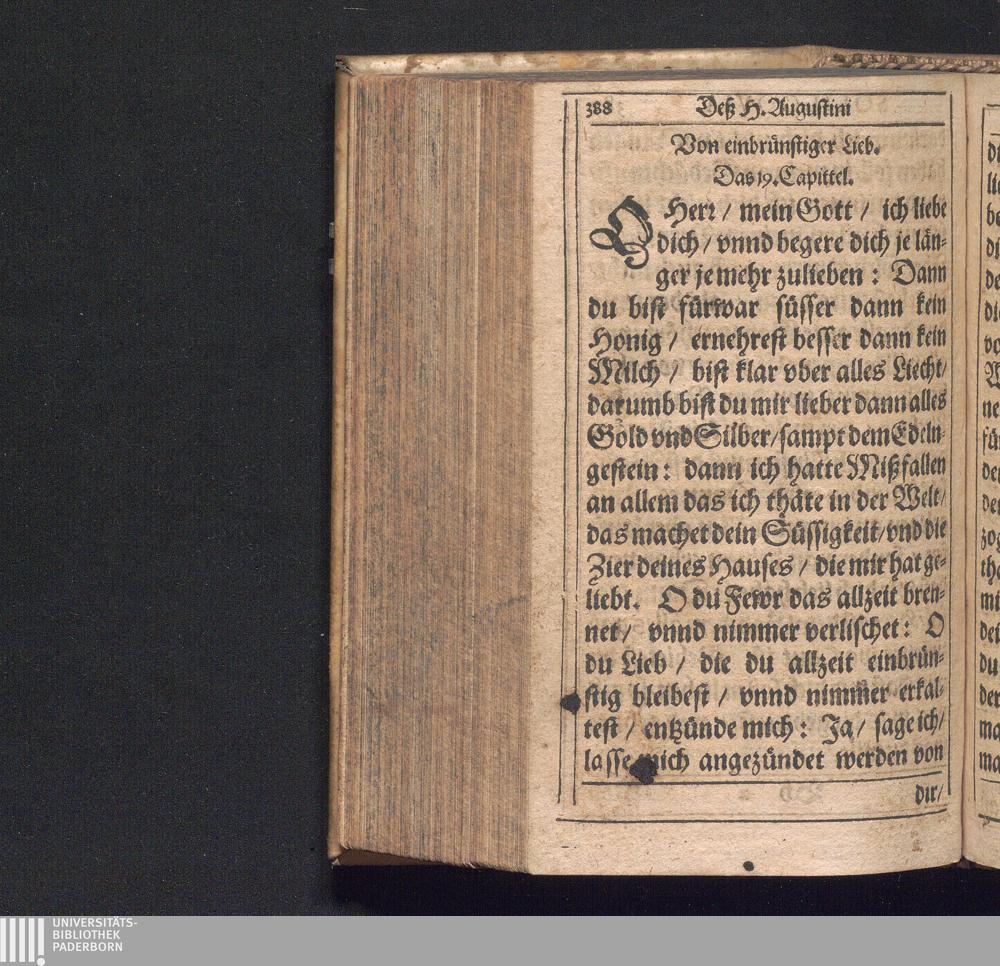 388 Deß H. Augustini
Von einbrünstiger Lieb.
Das 19. Capittel.
O Herr / mein Gott / ich liebe
dich / vnnd begere dich je län-
ger je mehr zulieben : Dann
du bist fürwar süsser dann kein
Honig / ernehrest besser dann kein
Milch / bist klar vber alles Liecht /
darumb bist du mir lieber dann alles
Gold vnd Silber / sampt dem Edeln-
gestein : dann ich hatte Mißfallen
an allem das ich thäte in der Welt /
das machet dein Süssigkeit / vnd die
Zier deines Hauses / die mir hat ge-
liebt. O du Fewr das allzeit bren-
net / vnnd nimmer verlischet : O
du Lieb / die du allzeit einbrün-
stig bleibest / vnnd nimmer erkal-
test / entzünde mich : Ja / sage ich /
lasse mich angezündet werden von
dir /
UNIVERSITÄTS-
BIBLIOTHEK
PADERBORN